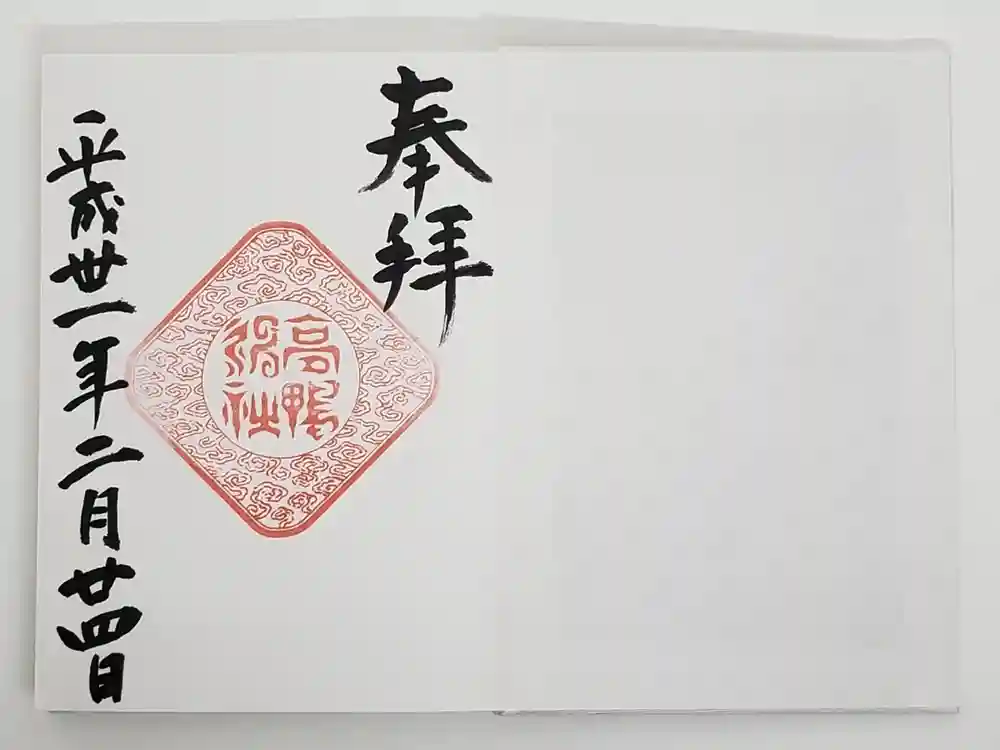 奉拝
高鴨
神社
平成丗一年二月廿四日